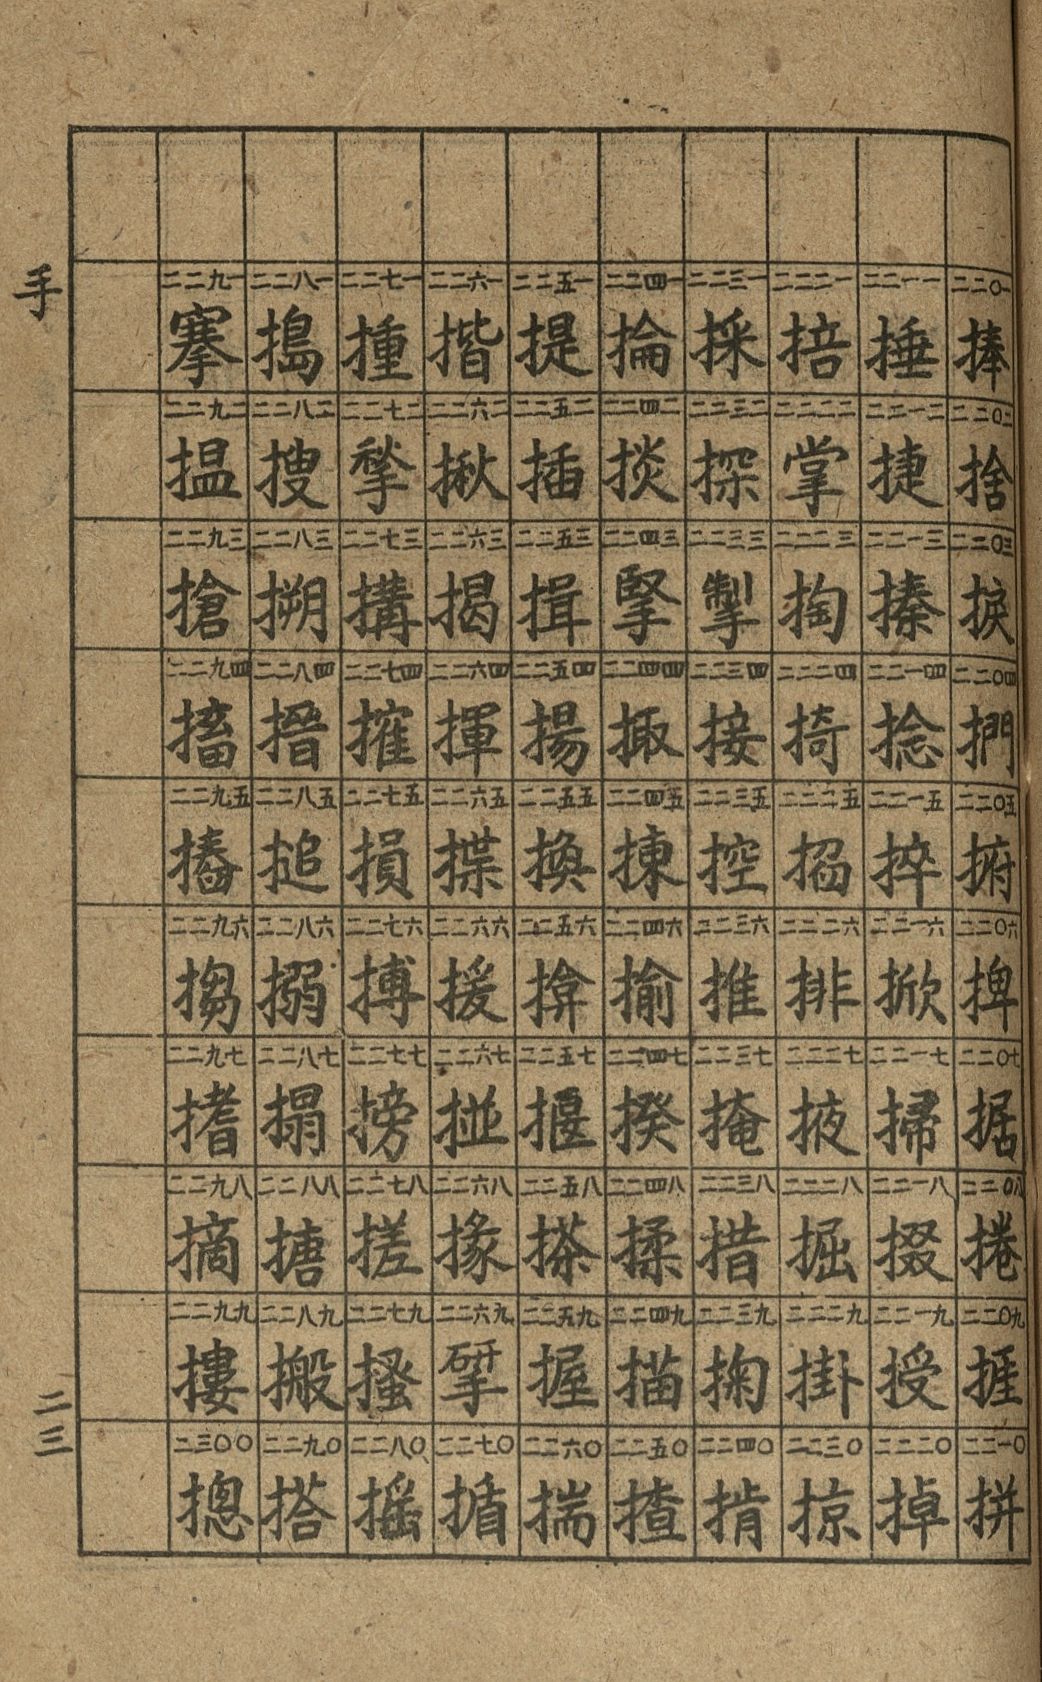 手
二二〇一 捧 二二〇二 捨 二二〇三 捩 二二〇四 捫 二二〇五 捬 二二〇六 捭 二二〇七 据 二二〇八 捲 二二〇九 捱 二二一〇 拼
二二一一 捶 二二一二 捷 二二一三 搸 二二一四 捻 二二一五 捽 二二一六 掀 二二一七 掃 二二一八 掇 二二一九 授 二二二〇 掉
二二二一 掊 二二二二 掌 二二二三 掏 二二二四 掎 二二二五 掐 二二二六 排 二二二七 掖 二二二八 掘 二二二九 掛 二二三〇 掠
二二三一 採 二二三二 探 二二三三 掣 二二三四 接 二二三五 控 二二三六 推 二二三七 掩 二二三八 措 二二三九 掬 二二四〇 掯
二二四一 掄 二二四二 掞 二二四三 掔 二二四四 掫 二二四五 揀 二二四六 揄 二二四七 揆 二二四八 揉 二二四九 描 二二五〇 揸
二二五一 提 二二五二 插 二二五三 揖 二二五四 揚 二二五五 換 二二五六 揜 二二五七 揠 二二五八 搽 二二五九 握 二二六〇 揣
二二六一 揩 二二六二 揪 二二六三 揭 二二六四 揮 二二六五 揲 二二六六 援 二二六七 掽 二二六八 掾 二二六九 揅 二二七〇 揗
二二七一 揰 二二七二 揫 二二七三 搆 二二七四 搉 二二七五 損 二二七六 搏 二二七七 搒 二二七八 搓 二二七九 搔 二二八〇 搖
二二八一 搗 二二八二 搜 二二八三 搠 二二八四 搢 二二八五 搥 二二八六 搦 二二八七 搨 二二八八 搪 二二八九 搬 二二九〇 搭
二二九一 搴 二二九二 搵 二二九三 搶 二二九四 搐 二二九五 二二九六 搊 二二九七 搘 二二九八 摘 二二九九 摟 二三〇〇 摠
二三